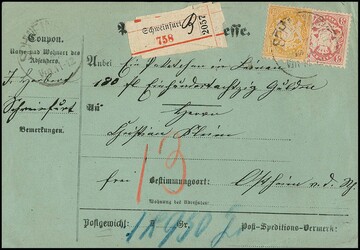 Coupon.
Name und Wohnort des
Absenders.
Schweinfurt
Bemerkungen.
Schweinfurt
758
2052
esse.
Anbei Ein Paketchen in Leinen
180 fl. Einhundertachtzig Gulden
An
Herrn
Christian Klein
frei Bestimmungsort: Ostheim v. d. Rh
Wohnung des Adressaten:
Postgewicht: Gr. Post-Speditions-Vermerk:
13